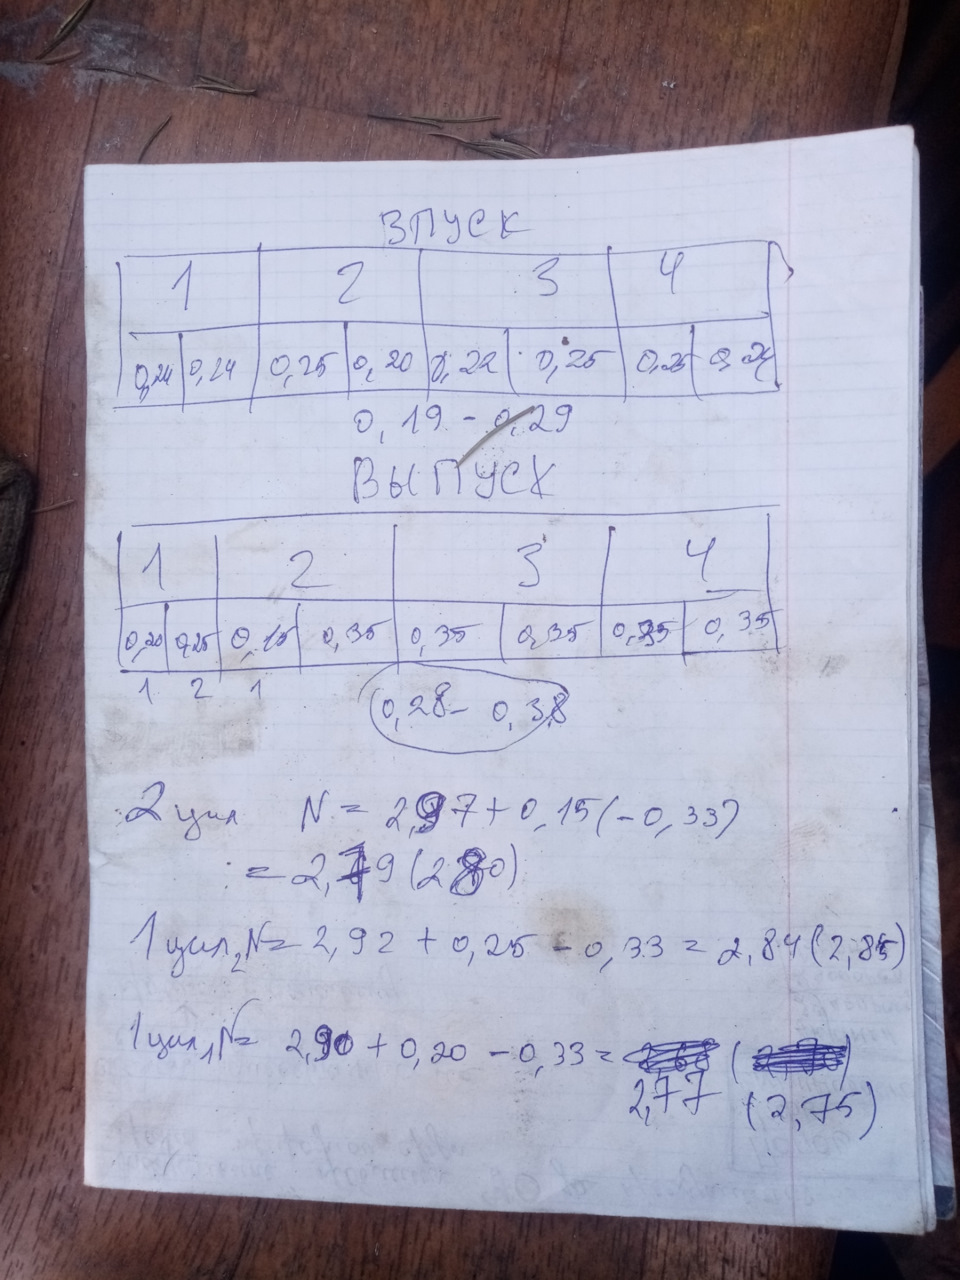 ВПУСК
1 2 3 4
0,24 0,24 0,25 0,20 0,22 0,25 0,25 0,24
0,19 - 0,29
ВЫПУСК
1 2 3 4
0,20 0,25 0,15 0,35 0,35 0,35 0,35 0,35
1 2 1
0,28 - 0,38
2 цил N = 2,97 + 0,15 (-0,33)
= 2,79 (2,80)
1 цил,2 N = 2,92 + 0,25 - 0,33 = 2,84 (2,85)
1 цил,1 N = 2,90 + 0,20 - 0,33 =
2,77 (2,75)